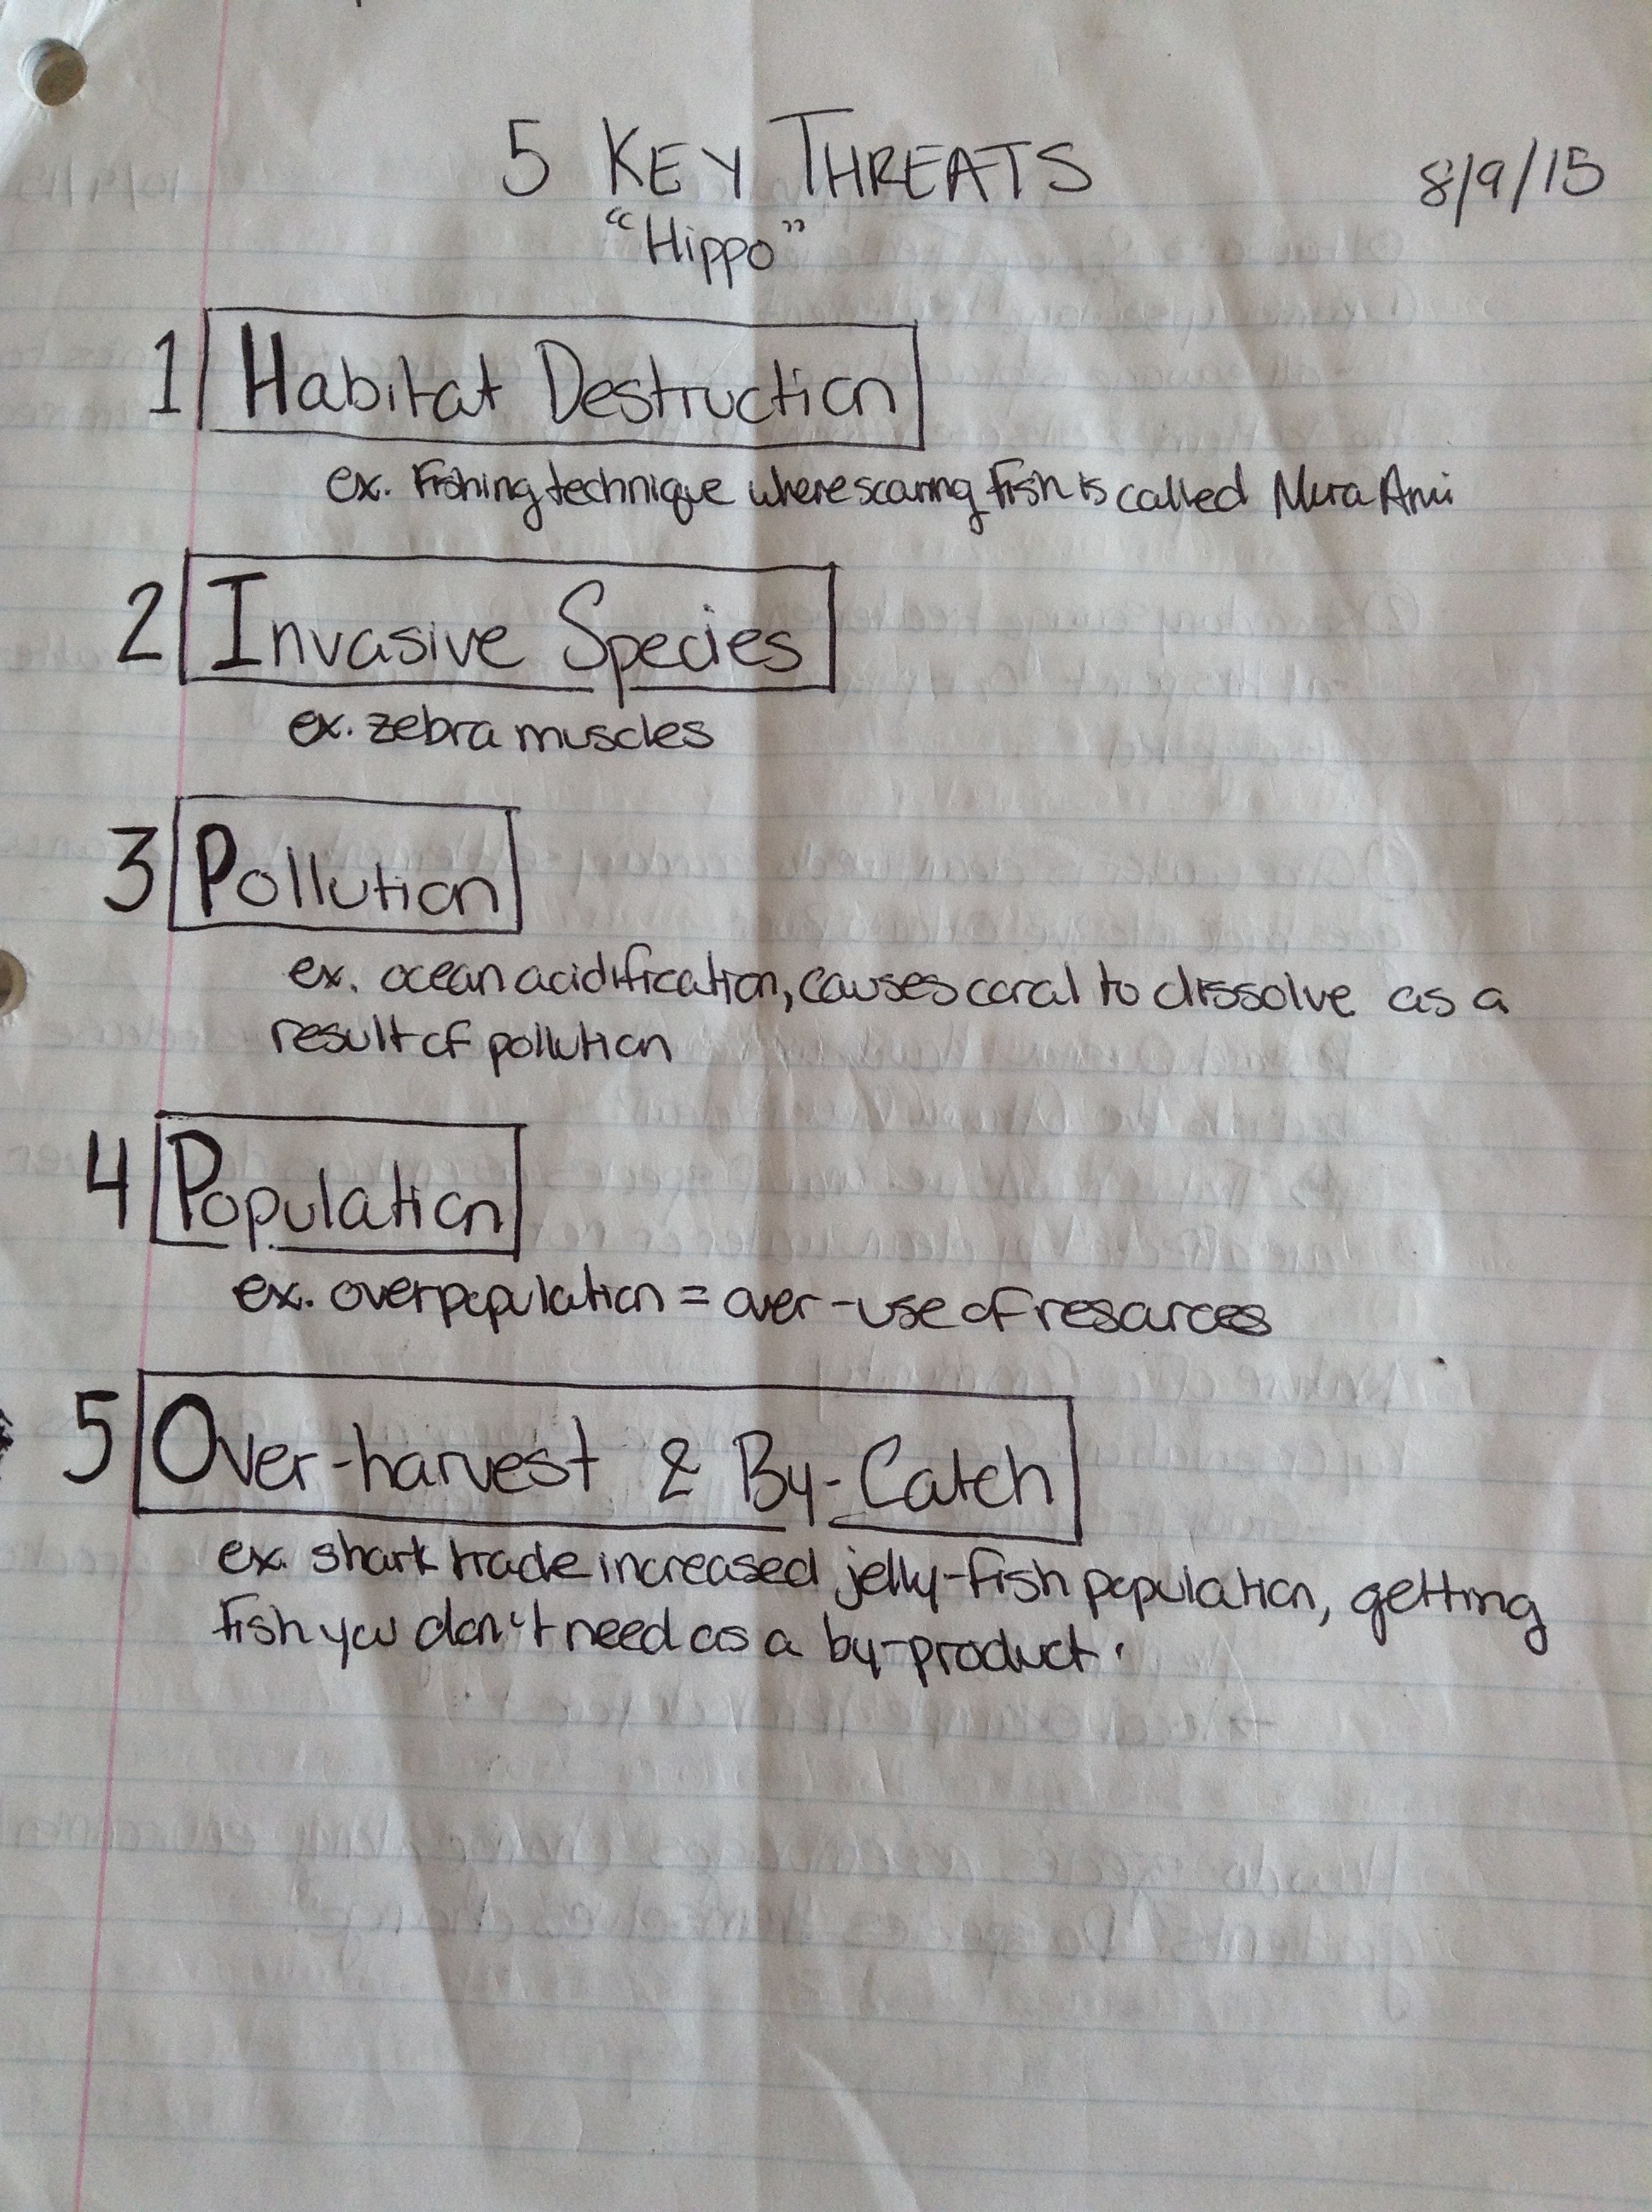 5 KEY THREATS
8/9/15
"Hippo"
1 Habitat Destruction
ex. Fishing technique where scaring fish is called Mura Ami
2 Invasive Species
ex. zebra muscles
3 Pollution
ex. ocean acidification, causes coral to dissolve as a
result of pollution
4 Population
ex. overpopulation = over-use of resources
5 Over-harvest & By-Catch
ex. shark trade increased jelly-fish population, getting
fish you don't need as a by-product.